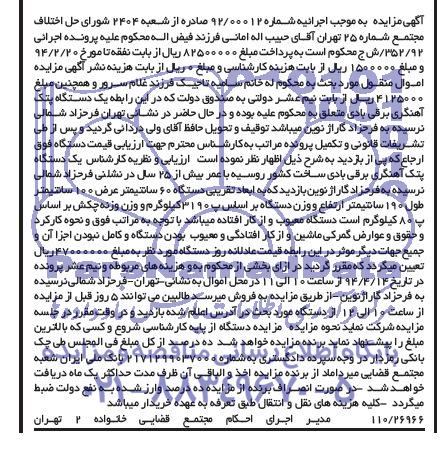 آگهی مزایده به موجب اجرائیه شماره ۹۲/۰۰۰۱۲ صادره از شعبه ۲۴۰۴ شورای حل اختلاف
مجتمع شماره ۲۵ تهران آقای حبیب اله امانی فرزند فیض اله محکوم علیه پرونده اجرائی
۳۵۲/۹۲/ش ج محکوم است به پرداخت مبلغ ۸۲۵۰۰۰۰۰ ریال از بابت نفقه تا مورخ ۹۴/۲/۲۰
و مبلغ ۱۵۰۰۰۰۰ ریال از بابت هزینه کارشناسی و مبلغ ۰ ریال از بابت هزینه نشر آگهی مزایده
اموال منقول مورد بحث به محکوم له خانم سامیه فرزند غلام سرور و همچنین مبلغ
۴۱۲۵۰۰۰ ریال از بابت نیم عشر دولتی به صندوق دولت که در این رابطه یک دستگاه پتک
آهنگری برقی بادی متعلق به محکوم علیه بوده و در حال حاضر در نشانی تهران فرحزاد شمالی
نرسیده به فرحزاد گاراژ نوین میباشد توقیف و تحویل حافظ آقای ولی گردید و پس از طی
تشریفات قانونی و تکمیل پرونده مراتب به کارشناس محترم جهت ارزیابی قیمت دستگاه فوق
ارجاع که پس از بازدید به شرح ذیل اظهار نظر نموده است ارزیابی و نظریه کارشناس یک دستگاه
پتک آهنگری برقی بادی ساخت کشور روسیه با عمر بیش از ۲۵ سال در نشانی فرحزاد شمالی
نرسیده به فرحزاد گاراژ نوین بازدید که به ابعاد تقریبی دستگاه ۶۰ سانتیمتر عرض ۱۰۰ سانتیمتر
طول ۱۹۰ سانتیمتر ارتفاع و وزن دستگاه بر اساس پ ۳۱۹۰ کیلوگرم و وزن وزنه چکش بر اساس
پ ۸۰ کیلوگرم است دستگاه معیوب و از کار افتاده میباشد با توجه به مراتب فوق و نحوه کارکرد
و حقوق و عوارض گمرکی ماشین و از کار افتادگی و معیوب بودن دستگاه و کامل نبودن اجزا آن و
جمیع جهات دیگر موثر در این رابطه قیمت عادلانه روز دستگاه مورد نظر به مبلغ ۴۷۰۰۰۰۰۰ ریال
تعیین میگردد که مقرر گردید در ازای بخشی از محکوم به و هزینه های مربوطه و نیم عشر پرونده
در تاریخ ۹۴/۴/۱۴ از ساعت ۱۰ الی ۱۱ در محل اموال به نشانی-تهران-فرحزاد شمالی نرسیده
به فرحزاد گاراژ نوین-از طریق مزایده به فروش میرسد طالبین می توانند ۵ روز قبل از مزایده
از ساعت ۱۰ الی ۱۲ از دستگاه مورد بحث در آدرس اعلام شده بازدید و در وقت مقرر در جلسه
مزایده شرکت نماید نحوه مزایده مزایده دستگاه از پایه کارشناسی شروع و کسی که بالاترین
مبلغ را پیشنهاد نماید برنده مزایده خواهد شد ده درصد از کل مبلغ فی المجلس طی چک
بانکی رمزدار در وجه سپرده دادگستری به شماره بانک ملی ایران شعبه
مجتمع قضایی میرداماد از برنده مزایده اخذ و الباقی آن ظرف مدت حداکثر یک ماه دریافت
خواهد شد -در صورت انصراف برنده از مزایده ده درصد واریز شده به نفع دولت ضبط
میگردد -کلیه هزینه های نقل و انتقال طبق تعرفه به عهده خریدار میباشد
۱۱۰/۲۶۹۶۶ مدیر اجرای احکام مجتمع قضایی خانواده ۲ تهران